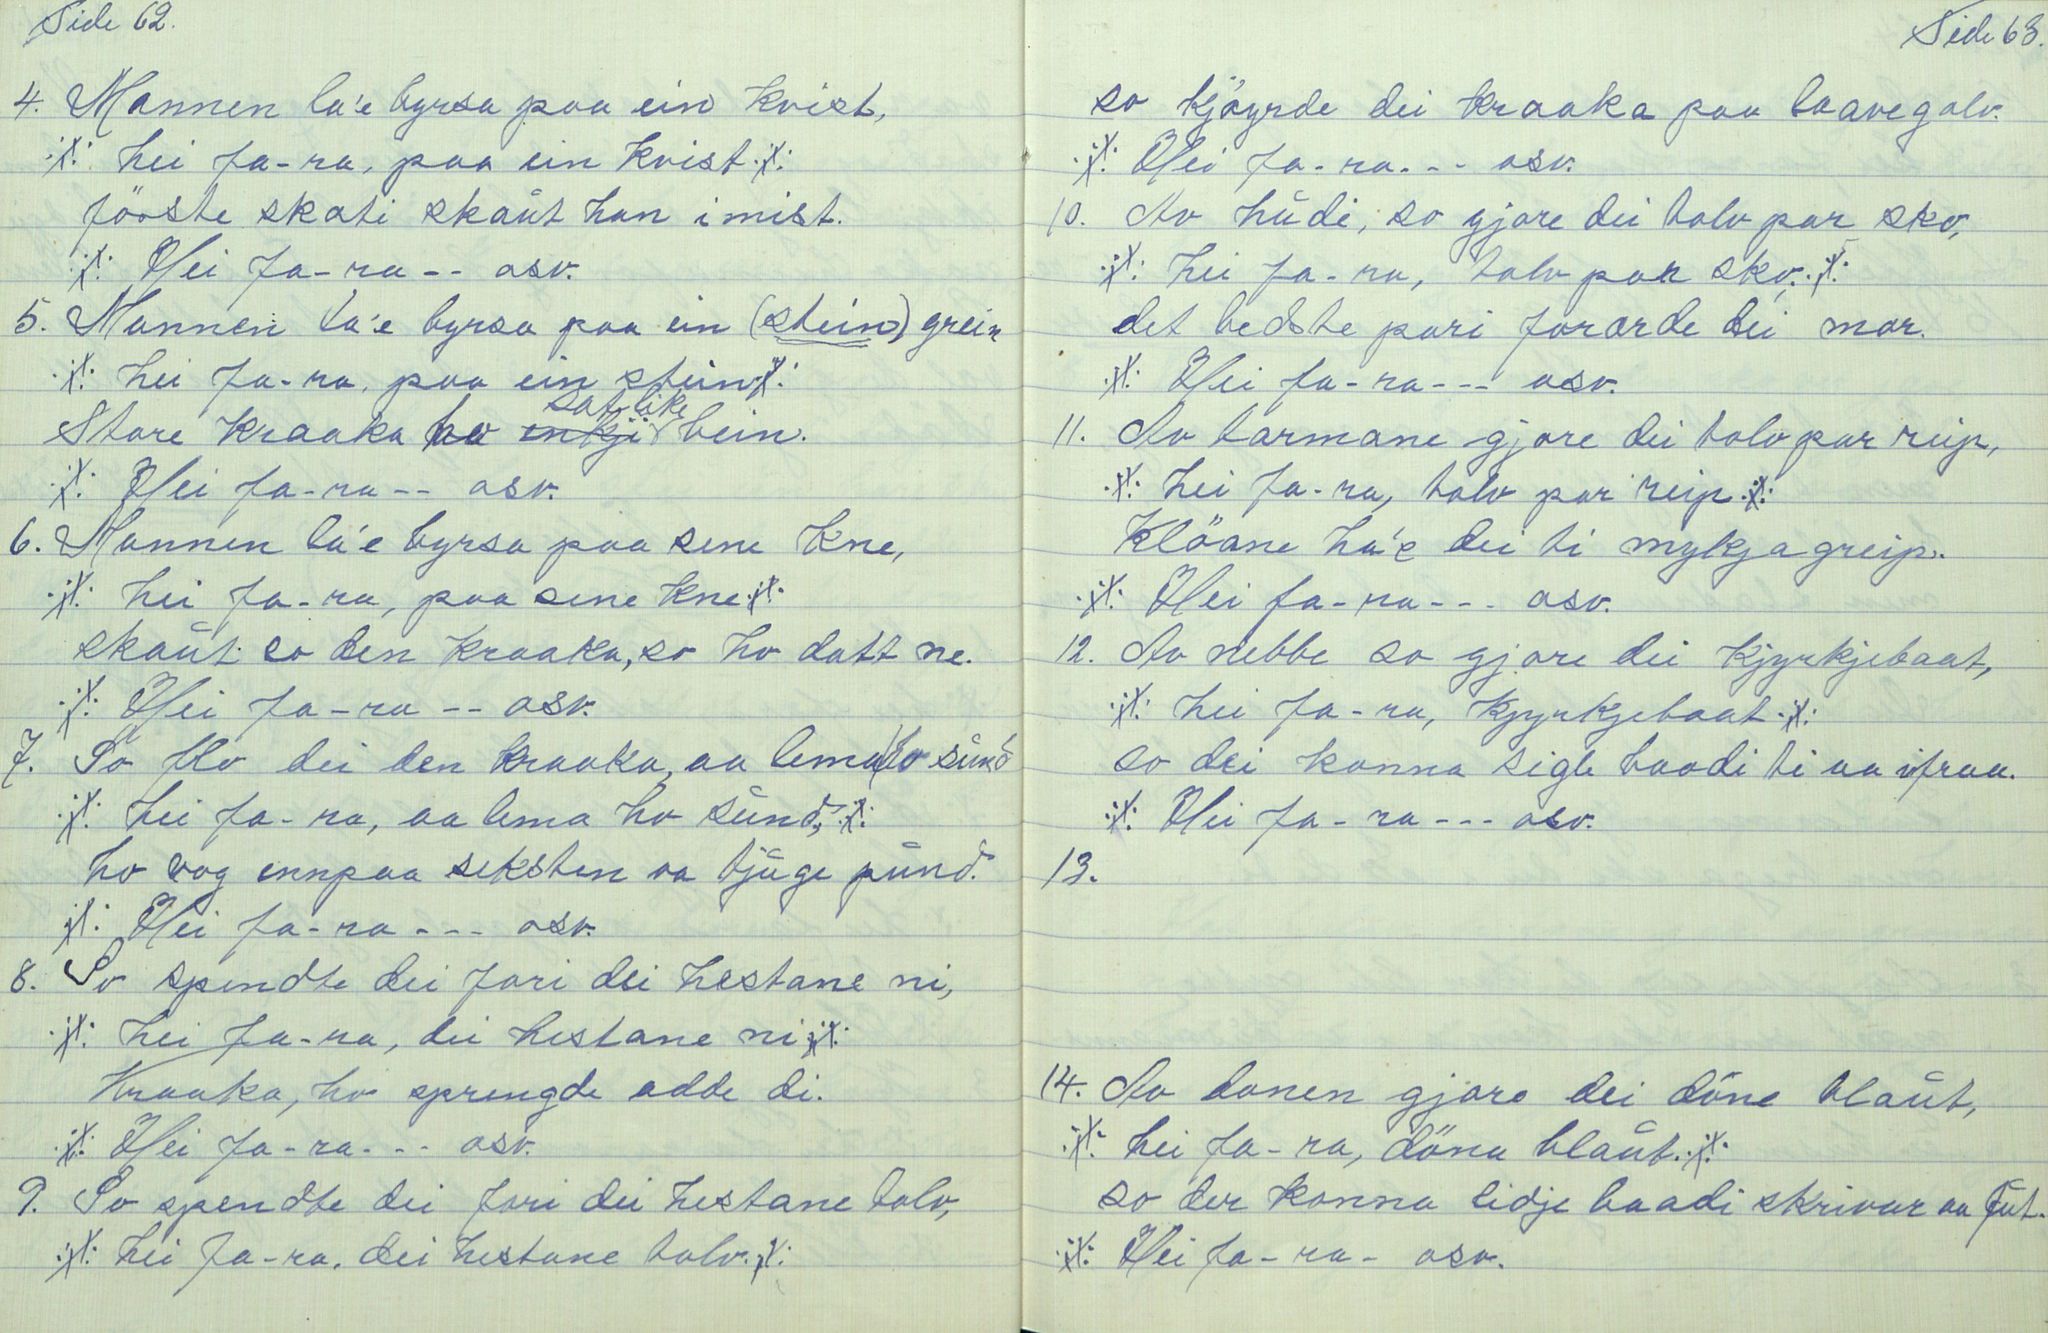 Side 62.
4. Mannen la'e byrsa paa ein kvist,
·/:· hei fa-ra, paa ein kvist ·/:·
fööste skoti skaŭt han i mist.
·/:· Hei fa-ra -- osv.
5. Mannen la'e byrsa paa ein (stein) grein
·/:· hei fa-ra, paa ein stein ·/:·
Store kraaka ho satlike bein.
·/:· Hei fa-ra -- osv.
6. Mannen la'e byrsa paa sene kne,
·/:· hei fa-ra, paa sene kne ·/:·
skaŭt so den kraaka, so ho datt ne.
·/:· Hei fa-ra -- osv.
7. So flo dei den kraaka, aa lema ho sŭnd
·/:· hei fa-ra, aa lema ho sŭnd, ·/:·
ho vog ennpaa seksten aa tjŭge pŭnd.
·/:· Hei fa-ra --- osv.
8. So spendte dei fori dei hestane ni,
·/:· hei fa-ra, dei hestane ni ·/:·
Kraaka, ho sprengde adde di.
·/:· Hei fa-ra --- osv.
9. So spendte dei fori dei hestane tolv,
·/:· hei fa-ra, dei hestane tolv. ·/:·
Side 63.
so kjöyrde dei kraaka paa laavegolv.
·/:· Hei fa-ra --- osv.
10. Av hŭdi, so gjore dei tolv par sko,
·/:· hei fa-ra, tolv par sko, ·/:·
det bedste pari forarde dei mor.
·/:· Hei fa-ra --- osv.
11. Av tarmane gjore dei tolv par reip,
·/:· hei fa-ra, tolv par reip ·/:·
Klöane ha'e dei ti mykjagreip.
·/:· Hei fa-ra --- osv.
12. Av nebbe so gjore dei kjyrkjebaat,
·/:· hei fa-ra, kjyrkjebaat ·/:·
so dei konna sigle baadi ti aa ifraa.
·/:· Hei fa-ra --- osv.
13.
14. Av donen gjore dei döne blaŭt,
·/:· hei fa-ra, döna blaŭt. ·/:·
so der konna lidje baadi skrivar aa fŭt.
·/:· Hei fa-ra - osv.